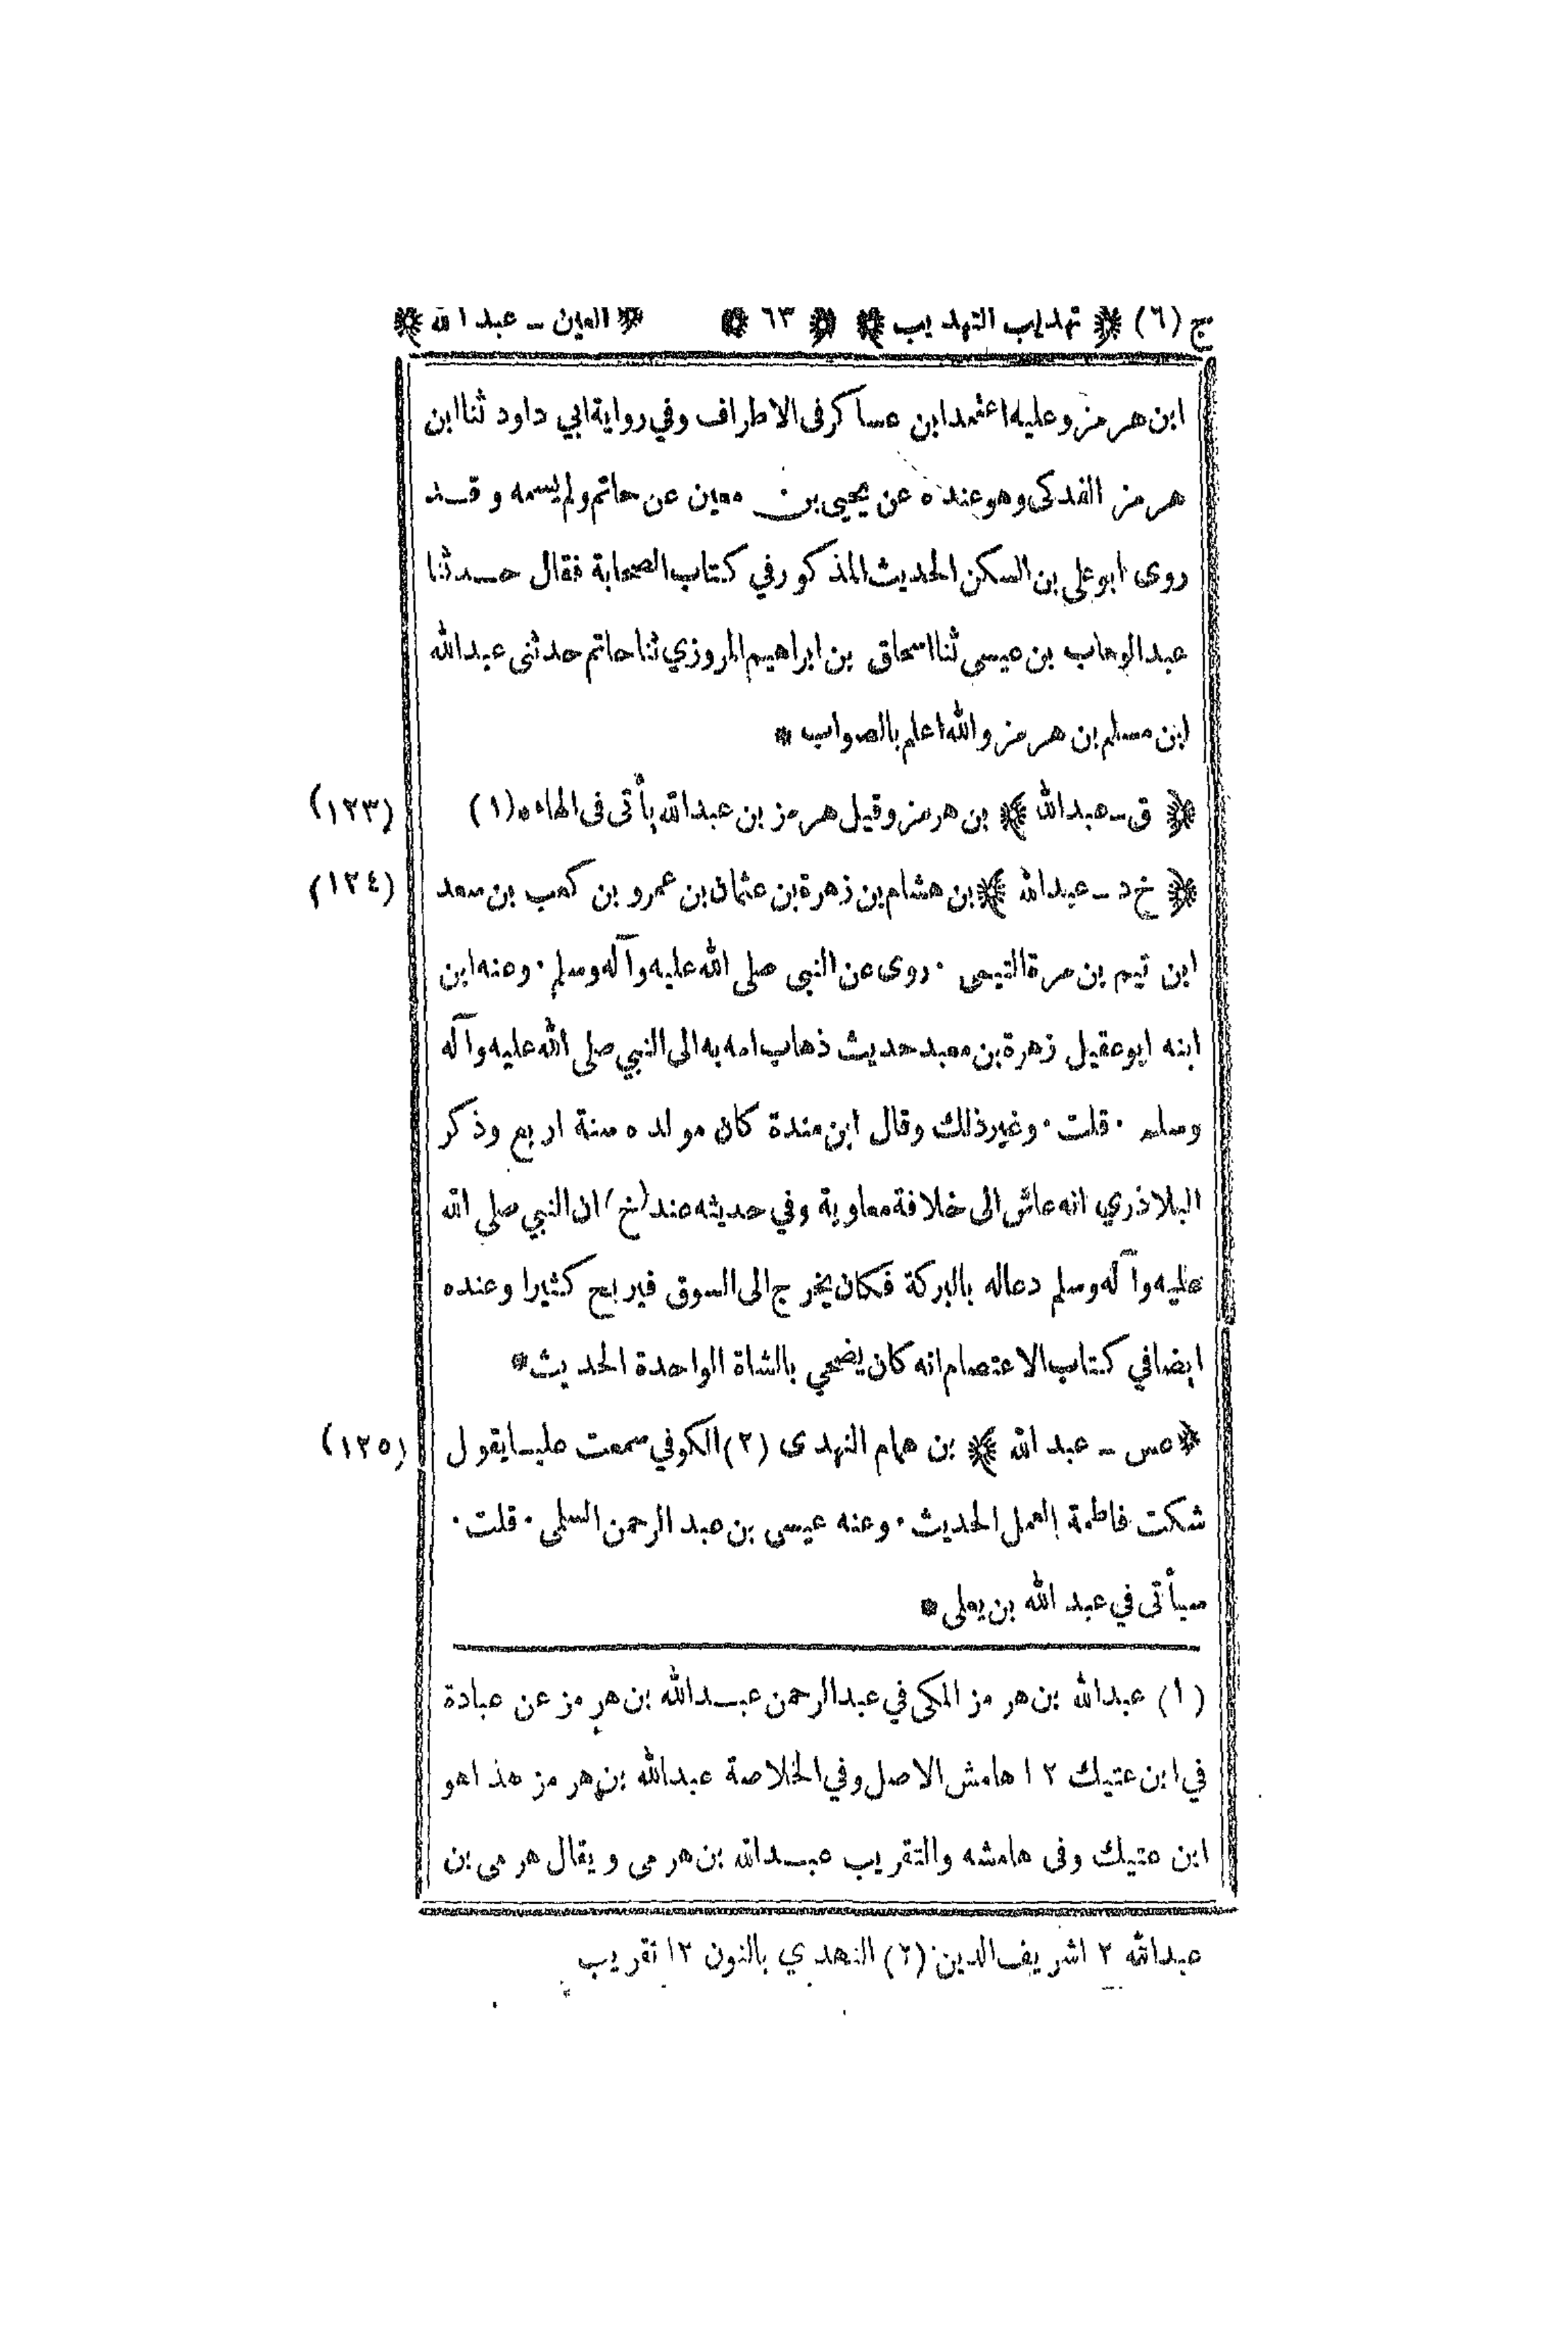 ج (٦) ﴿ تهذيب التهذيب ﴾ ﴿ ٦٣ ﴾ ﴿ العين - عبد الله ﴾
ابن هرمز وعليه اعتمد ابن عساكر فى الاطراف وفي رواية ابي داود ثنا ابن
هرمز الفدكى وهو عنده عن يحيى بن معين عن حاتم ولم يسمه وقد
روى ابو على بن السكن الحديث المذكور في كتاب الصحابة فقال حدثنا
عبد الوهاب بن عيسى ثنا اسحاق بن ابراهيم المروزي ثنا حاتم حدثنى عبد الله
ابن مسلم بن هرمز والله اعلم بالصواب *
﴿ ق - عبد الله ﴾ بن هرمز وقيل هرمز بن عبد الله يأتى فى الهاء ٥ (١) (١٢٣)
﴿ خ د - عبد الله ﴾ بن هشام بن زهرة بن عثمان بن عمرو بن كعب بن سعد (١٢٤)
ابن تيم بن مرة التيمى ٠ روى عن النبى صلى الله عليه وآله وسلم ٠ وعنه ابن
ابنه ابو عقيل زهرة بن معبد حديث ذهاب امه به الى النبي صلى الله عليه وآله
وسلم ٠ قلت ٠ وغير ذلك وقال ابن مندة كان مولده سنة اربع وذكر
البلاذري انه عاش الى خلافة معاوية وفي حديثه عند (خ) ان النبي صلى الله
عليه وآله وسلم دعا له بالبركة فكان يخرج الى السوق فيربح كثيرا وعنده
ايضا في كتاب الاعتصام انه كان يضحي بالشاة الواحدة الحديث *
﴿ عس - عبد الله ﴾ بن همام النهدى (٢) الكوفي سمعت عليا يقول (١٢٥)
شكت فاطمة العمل الحديث ٠ وعنه عيسى بن عبد الرحمن السلمى ٠ قلت ٠
سيأتى في عبد الله بن يعلى *
(١) عبد الله بن هرمز المكى في عبد الرحمن عبد الله بن هرمز عن عبادة
في ابن عتيك ١٢ هامش الاصل وفي الخلاصة عبد الله بن هرمز هذا هو
ابن عتيك وفى هامشه والتقريب عبد الله بن هرمى ويقال هرمى بن
عبد الله ١٢ شريف الدين (٢) النهدي بالنون ١٢ تقريب